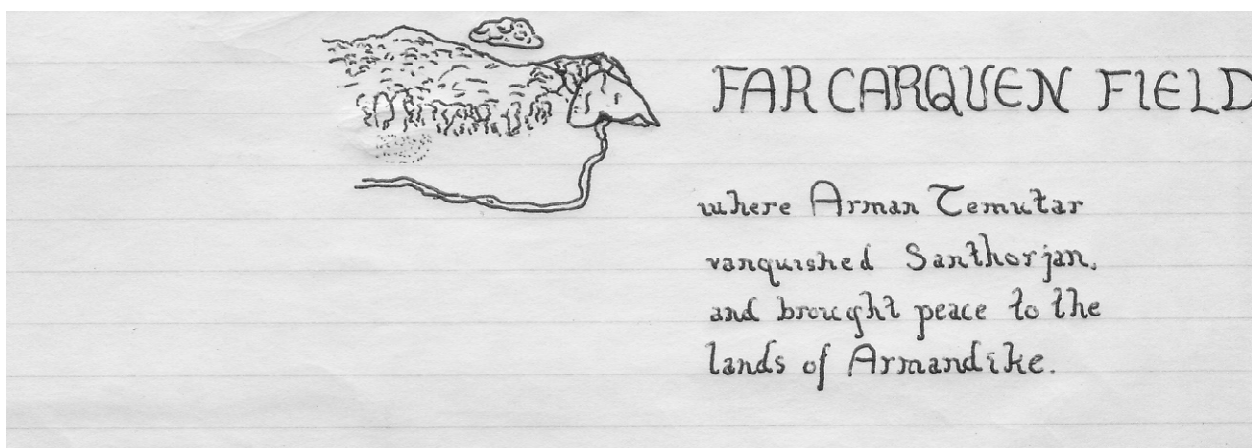 FAR CARQUEN FIELD
where Arman Temutar
vanquished Santhorjan,
and brought peace to the
lands of Armandike.